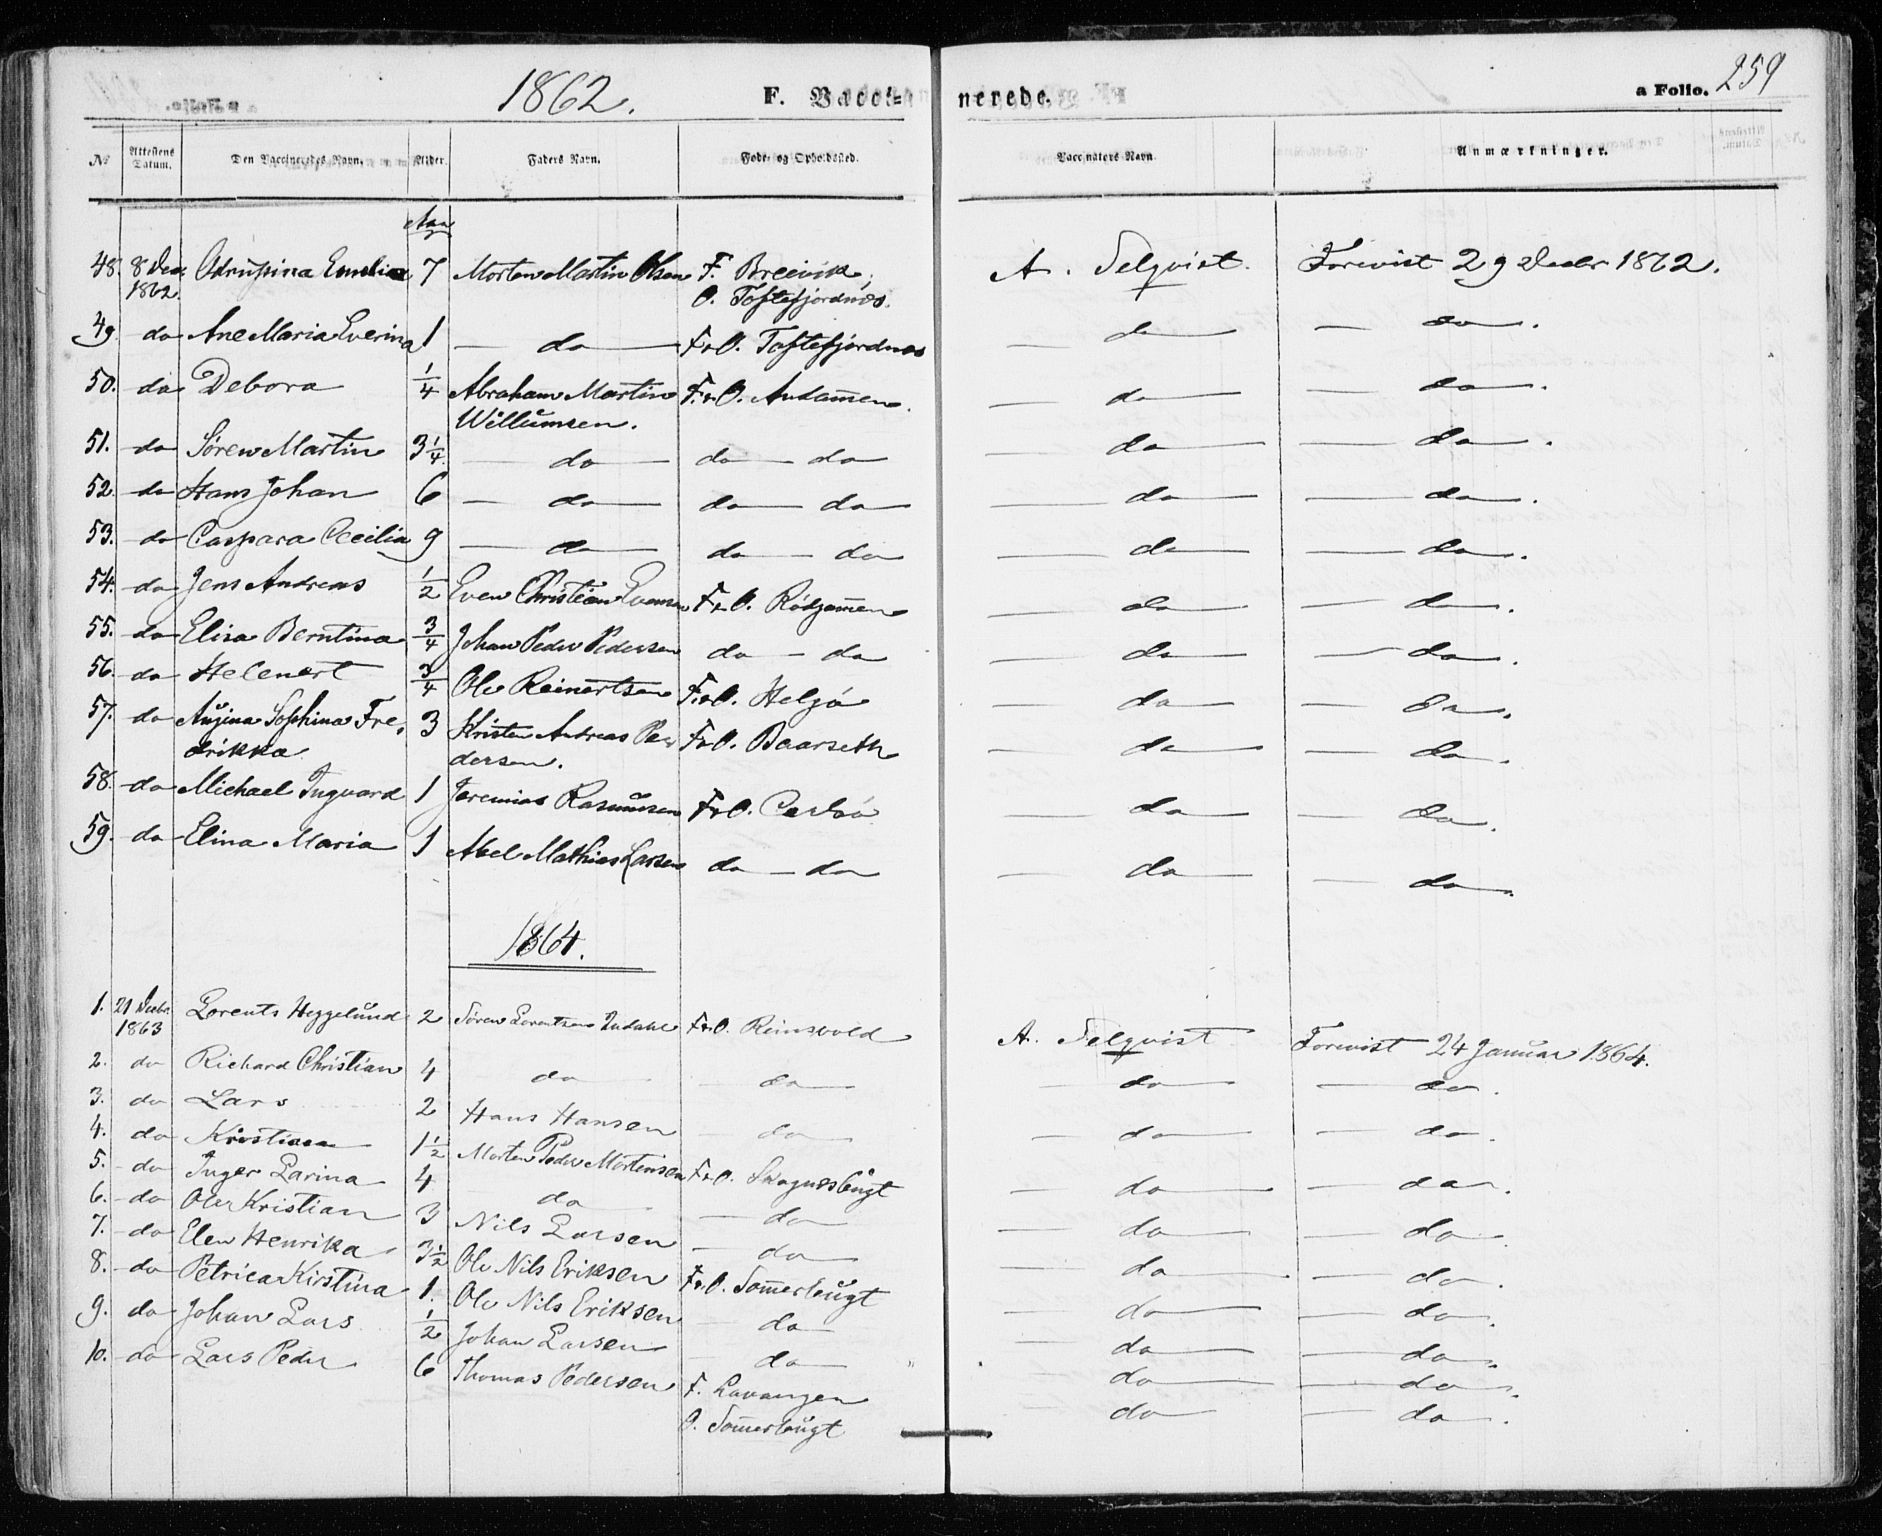 1862. F. Vacci- nerede. a Folio. 259
No Attestens Datum. Den Vaccineredes Navn. Alder. Faders Navn. Føde- og Opholdssted. Vaccinatørs Navn. Anmærkninger.
Aar
48. 8 Dec. Emelie 7 Morten Martin Olsen F. Breivik A. Selqvist. Forevist 29 Decbr 1862.
1862 O. Toftefjordnæs.
49 do Ane Maria Everina 1 — do — F&O. Toftefjordnæs — do — — do.
50. do Debora 1/4 Abraham Martin F&O. Andamen. — do — — do.
Willumsen.
51. do Søren Martin 3 1/4 — do — do — do — do — — do.
52. do Hans Johan 6 — do — do — do — do — — do.
53. do Caspara Cecilia 9 — do — do — do — do — — do.
54. do Jens Andreas 1/2 Even Christian Evensen F&O. Rödgammen — do — — do.
55. do Elisa Berntina 3/4 Johan Peder Pedersen do — do — do — — do.
56. do Helenert 3/4 Ole Reinertsen F&O. Helgö — do — — do.
57. do Sophina Fre- 3 Kristen Andreas Pe- F&O. Baarseth — do — — do.
drikka dersen.
58. do Michael Ingvard 1 Jeremias Rasmussen F&O. — do — — do.
59. do Elina Maria 1 Abel Mathias Larsen do — do — do — — do.
1864.
1. 21 Decbr. Lorents Heggelund 2 Søren Lorentsen F&O. Reinsvold A. Selqvist Forevist 24 Januar 1864.
1863
2. do Richard Christian 4 do — do — — do — — do.
3. do Lars 2 Hans Hansen do — — do — — do.
4. do Kristian 1 1/2 Morten Peder Mortensen F&O. Skognesbugt — do — — do.
5. do Inger Larina 4 do — do — — do — — do.
6. do Ole Kristian 3 Nils Larsen — do — — do — — do.
7. do Elen Henrika 3 1/2 Ole Nils Eriksen F&O. Som̄erbugt — do — — do.
8. do Petrica Kirstina 1. Ole Nils Eriksen do — — do — — do.
9. do Johan Lars 1/2 Johan Larsen — do — — do — — do.
10. do Lars Peder 6 Thomas Pedersen F. Lavangen do — — do.
O. Som̄erbugt